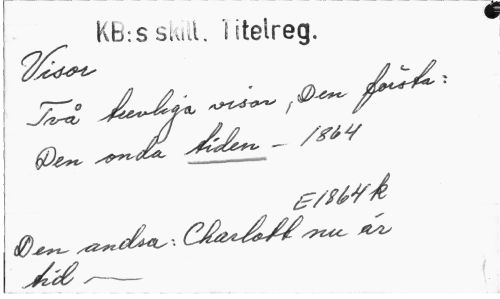 KB:s skill. Titelreg.
Visor
Två trevliga visor, Den första:
Den onda tiden – 1864
E1864k
Den andra: Charlott nu är
tid —